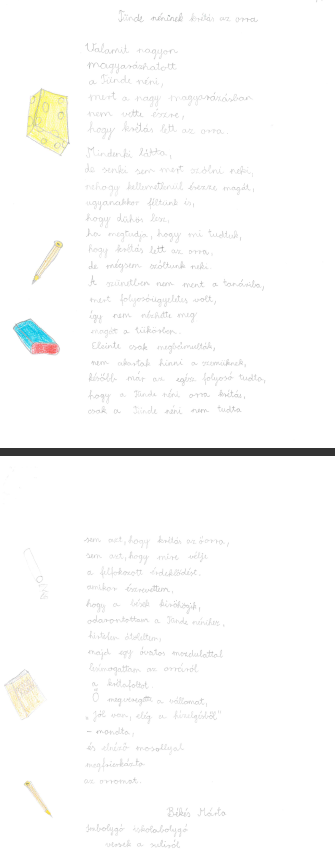 Tünde néninek krétás az orra
Valamit nagyon
magyarázhatott
a Tünde néni,
mert a nagy magyarázásban
nem vette észre,
hogy krétás lett az orra.
Mindenki látta,
de senki sem mert szólni neki,
nehogy kellemetlenül érezze magát,
ugyanakkor féltünk is,
hogy dühös lesz,
ha megtudja, hogy mi tudtuk,
hogy krétás lett az orra,
de mégsem szóltunk neki.
A szünetben nem ment a tanáriba,
mert folyosóügyeletes volt,
így nem nézhette meg
magát a tükörben.
Eleinte csak megbámulták,
nem akartak hinni a szemüknek,
később már az egész folyosó tudta,
hogy a Tünde néni orra krétás,
csak a Tünde néni nem tudta
sem azt, hogy krétás az orra,
sem azt, hogy mire vélje
a felfokozott érdeklődést.
Amikor észrevettem,
hogy a bések kiröhögik,
odarontottam a Tünde nénihez,
hirtelen átöleltem,
majd egy óvatos mozdulattal
leimogattam az orráról
a krétafoltot.
Ő megveregette a vállamat,
„jól van, elég a hízelgésből"
- mondta,
és elnéző mosollyal
megfricskázta
az orromat.
Békés Márta
Imbolygó iskolabolygó
versek a suliról